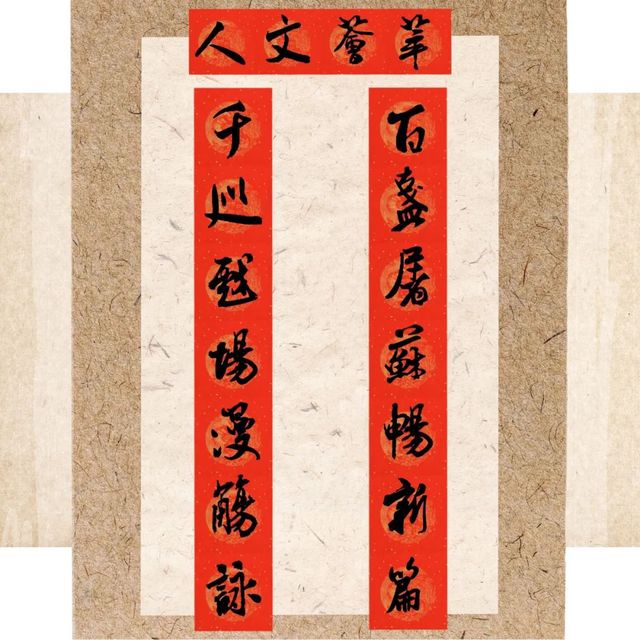 人文薈萃
百盞屠蘇暢新篇
千巡戲場漫觴詠